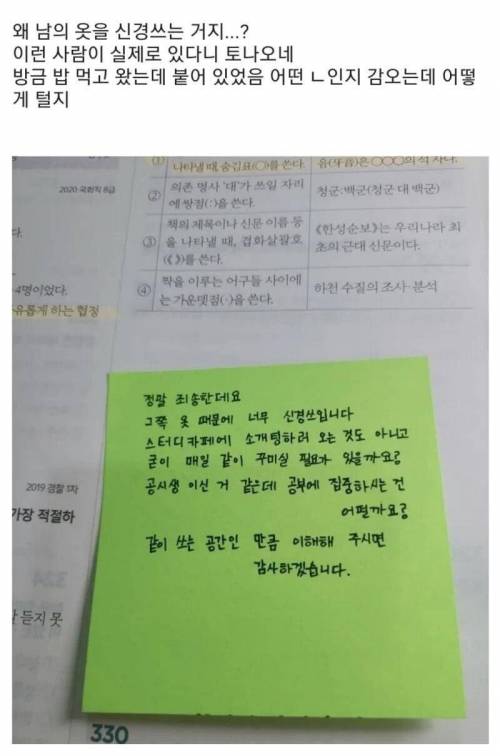 왜 남의 옷을 신경쓰는 거지...?
이런 사람이 실제로 있다니 토나오네
방금 밥 먹고 왔는데 붙어 있었음 어떤 ㄴ인지 감오는데 어떻
게 털지
① 나타낼 때, 숨김표(○)를 쓴다.
음(牙音)은 ○○○의 석 자다.
2020 국회직 8급
② 의존 명사 '대'가 쓰일 자리
에 쌍점(:)을 쓴다.
청군:백군(청군 대 백군)
다.
③ 책의 제목이나 신문 이름 등
을 나타낼 때, 겹화살괄호
(《》)를 쓴다.
《한성순보》는 우리나라 최
초의 근대 신문이다.
4명이었다.
④ 짝을 이루는 어구들 사이에
는 가운뎃점(·)을 쓴다.
하천 수질의 조사·분석
유롭게 하는 협정
정말 죄송한데요
그쪽 옷 때문에 너무 신경쓰입니다
스터디카페에 소개팅하러 오는 것도 아니고
굳이 매일 같이 꾸미실 필요가 있을까요?
공시생 이신 거 같은데 공부에 집중하시는 건
어떨까요?
같이 쓰는 공간인 만큼 이해해 주시면
감사하겠습니다.
2019 경찰 1차
가장 적절하
듣지 못
330